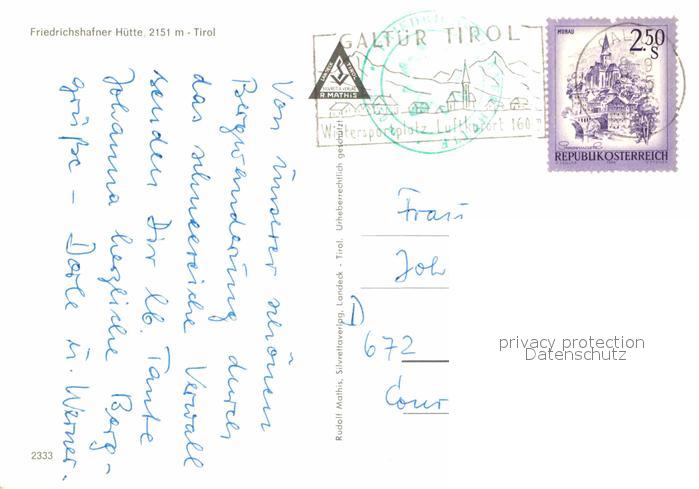 Friedrichshafner Hütte, 2151 m - Tirol
GALTÜR TIROL
Wintersportplatz Luftkurort 160
R MATHIS
MURAU
2.50
S
REPUBLIK ÖSTERREICH
Von unserer schönen
Bergwanderung durch
das schneereiche Verwall
senden Dir lb. Tante
Johanna herzliche Berg-
grüße - Dorle u. Werner.
Rudolf Mathis, Silvrettaverlag, Landeck - Tirol. Urheberrechtlich geschützt
Frau
Joh
D
672
privacy protection
Datenschutz
2333